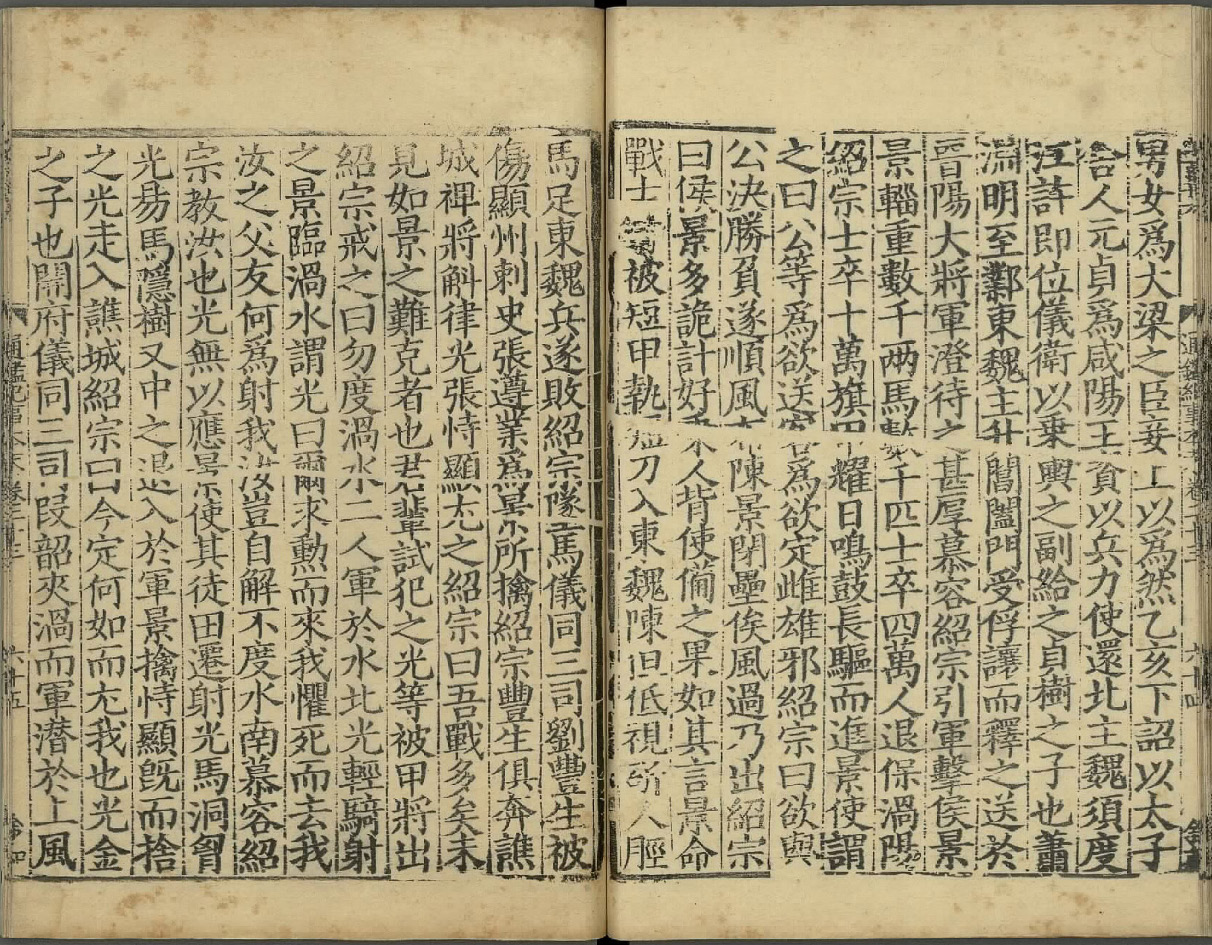 男女爲大梁之臣妾上以爲然乙亥下詔以太子
舍人元貞爲咸陽王資以兵力使還北主魏須度
江許即位儀衛以乗輿之副給之貞樹之子也蕭
淵明至鄴東魏主升閶闔門受俘讓而釋之送於
晉陽大將軍澄待之甚厚慕容紹宗引軍擊侯景
景輜重數千兩馬數千匹士卒四萬人退保渦陽
紹宗士卒十萬旗甲耀日鳴鼓長驅而進景使謂
之曰公等爲欲送客爲欲定雌雄邪紹宗曰欲與
公決勝負遂順風布陳景閉壘俟風過乃出紹宗
曰侯景多詭計好乗人背使備之果如其言景命
戰士被短甲執短刀入東魏陳但低視斫人脛
馬足東魏兵遂敗紹宗隊馬儀同三司劉豐生被
傷顯州刺史張遵業爲景所擒紹宗豐生俱奔譙
城裨將斛律光張恃顯尤之紹宗曰吾戰多矣未
見如景之難克者也君輩試犯之光等被甲將出
紹宗戒之曰勿度渦水二人軍於水北光輕騎射
之景臨渦水謂光曰爾求勲而來我懼死而去我
汝之父友何爲射我汝豈自解不度水南慕容紹
宗教汝也光無以應景使其徒田遷射光馬洞胷
光易馬隱樹又中之退入於軍景擒恃顯旣而捨
之光走入譙城紹宗曰今定何如而尤我也光金
之子也開府儀同三司叚韶夾渦而軍潜於上風
通鑑紀事本末卷二十三
六十五